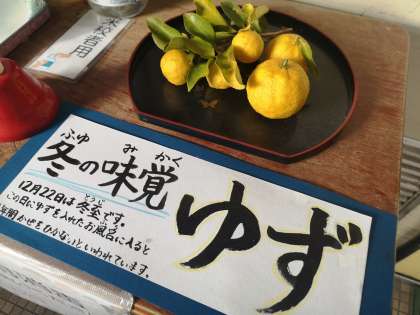 来校者用
ふゆ みかく
冬の味覚
とうじ
12月22日は冬至です。
この日にゆずを入れたお風呂に入ると
年間かぜをひかないといわれています。
ゆず